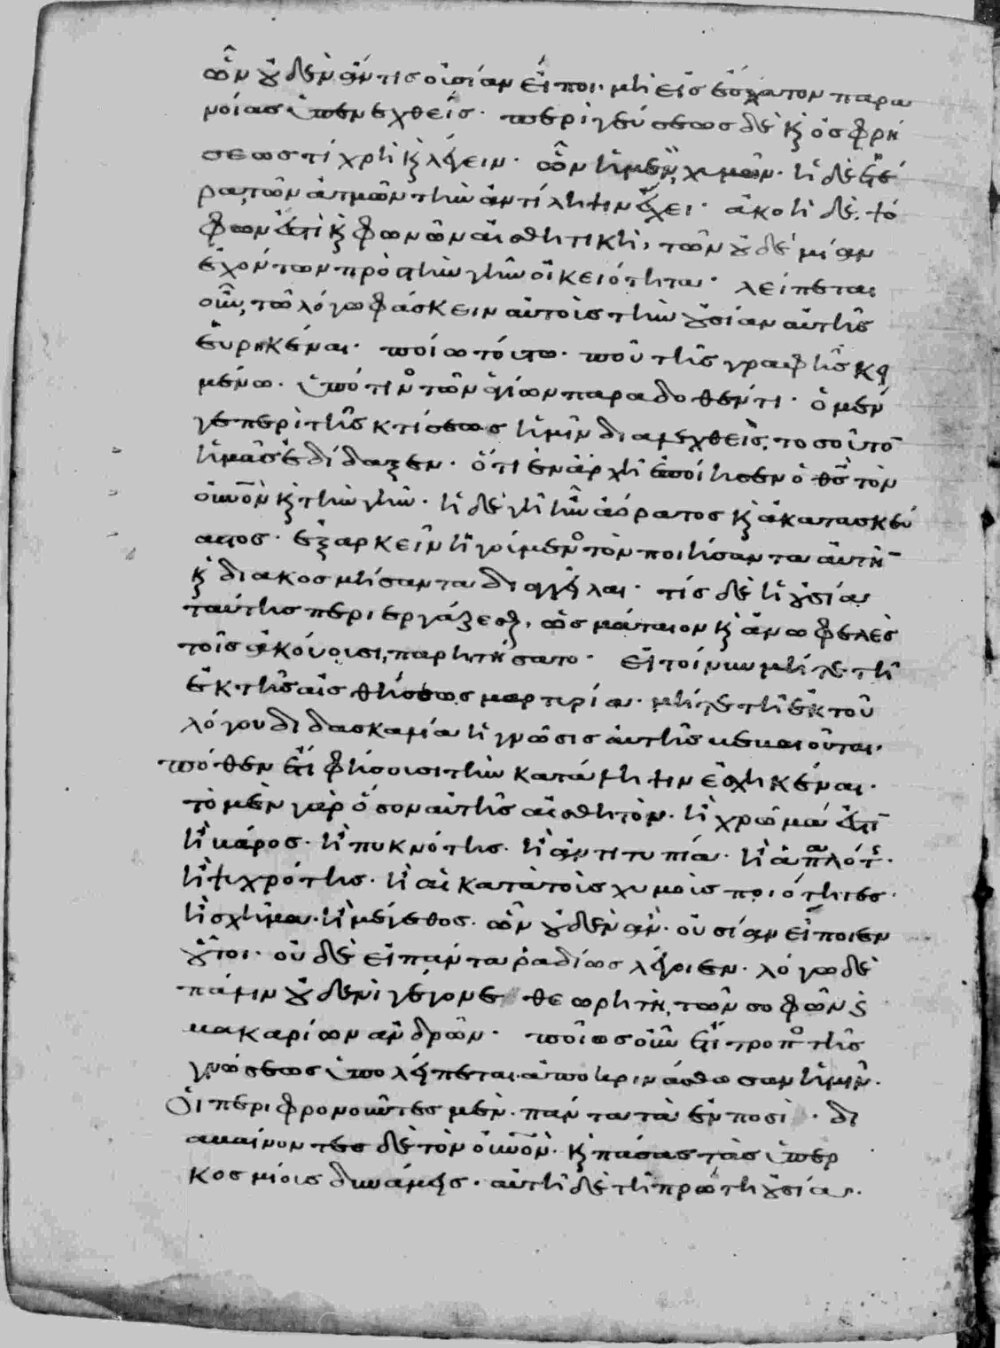 ὧν οὐδὲν ἄν τις οὐσίαν εἴποι· μὴ εἰς ἔσχατον παρα
νοίας ὑπενεχθείς· περὶ γεύσεως δὲ καὶ ὀσφρή
σεως τί χρὴ καὶ λέγειν· ὧν ἡ μὲν, χυμῶν· ἡ δὲ ἑτέ
ρα, τῶν ἀτμῶν τὴν ἀντίληψιν ἔχει· ἀκοὴ δὲ ψό
φων ἐστὶ καὶ φωνῶν αἰσθητικὴ, τῶν οὐδεμίαν
ἐχόντων πρὸς τὴν γῆν οἰκειότητα· λείπεται
οὖν, τῶ λόγω φάσκειν αὐτοὺς τὴν οὐσίαν αὐτῆς
εὑρηκέναι· ποίω τούτω· ποῦ τῆς γραφῆς κει
μένω· ὑπὸ τίνος τῶν ἁγίων παραδοθέντι· ὁ μέν
γε περὶ τῆς κτίσεως ἡμῖν διαλεχθεὶς, τοσοῦτον
ἡμᾶς ἐδίδαξεν· ὅτι ἐν ἀρχῆ ἐποίησεν ὁ θς τὸν
οὐνὸν καὶ τὴν γῆν· ἡ δὲ γῆ ἦν ἀόρατος καὶ ἀκατασκεύ
αστος· ἐξαρκεῖν ἡγούμενος τὸν ποιήσαντα αὐτὴν
καὶ διακοσμήσαντα διαγγεῖλαι· τίς δὲ ἡ οὐσία
ταύτης περιεργάζεσθαι, ὡς μάταιον καὶ ἀνωφελὲς
τοῖς ἀκούουσι, παρητήσατο· εἰ τοίνυν μήτε τῆ
ἐκ τῆς αἰσθήσεως μαρτυρία· μήτε τῆ ἐκ τοῦ
λόγου διδασκαλία ἡ γνῶσις αὐτῆς βεβαιοῦται·
πόθεν ἔτι φήσουσι τὴν κατάληψιν ἐσχηκέναι·
τὸ μὲν γὰρ ὅσον αὐτῆς αἰσθητὸν· ἢ χρῶμά ἐστιν
ἢ βάρος· ἢ πυκνότης· ἢ ἀντιτυπία· ἢ ἁπαλότης·
ἢ ψυχρότης· ἢ αἱ κατὰ τοὺς χυμοὺς ποιότητες·
ἢ σχῆμα· ἢ μέγεθος· ὧν οὐδὲν ἂν· οὐσίαν εἴποιεν
οὗτοι· οὐδὲ εἰ πάντα ῥαδίως λέγοιεν· λόγω δὲ
πάλιν οὐδενὶ γέγονε θεωρητὴ, τῶν σοφῶν καὶ
μακαρίων ἀνδρῶν· ποῖος οὖν ἔτι τρόπος τῆς
γνώσεως ὑπολείπεται ἀποκρινάσθωσαν ἡμῖν·
Οἱ περιφρονοῦντες μὲν· πάντα τὰ ἐν ποσὶ· δι
αβαίνοντες δὲ τὸν οὐνὸν· καὶ πάσας τὰς ὑπερ
κοσμίους δυνάμεις· αὐτῆ δὲ τῆ πρώτη οὐσία